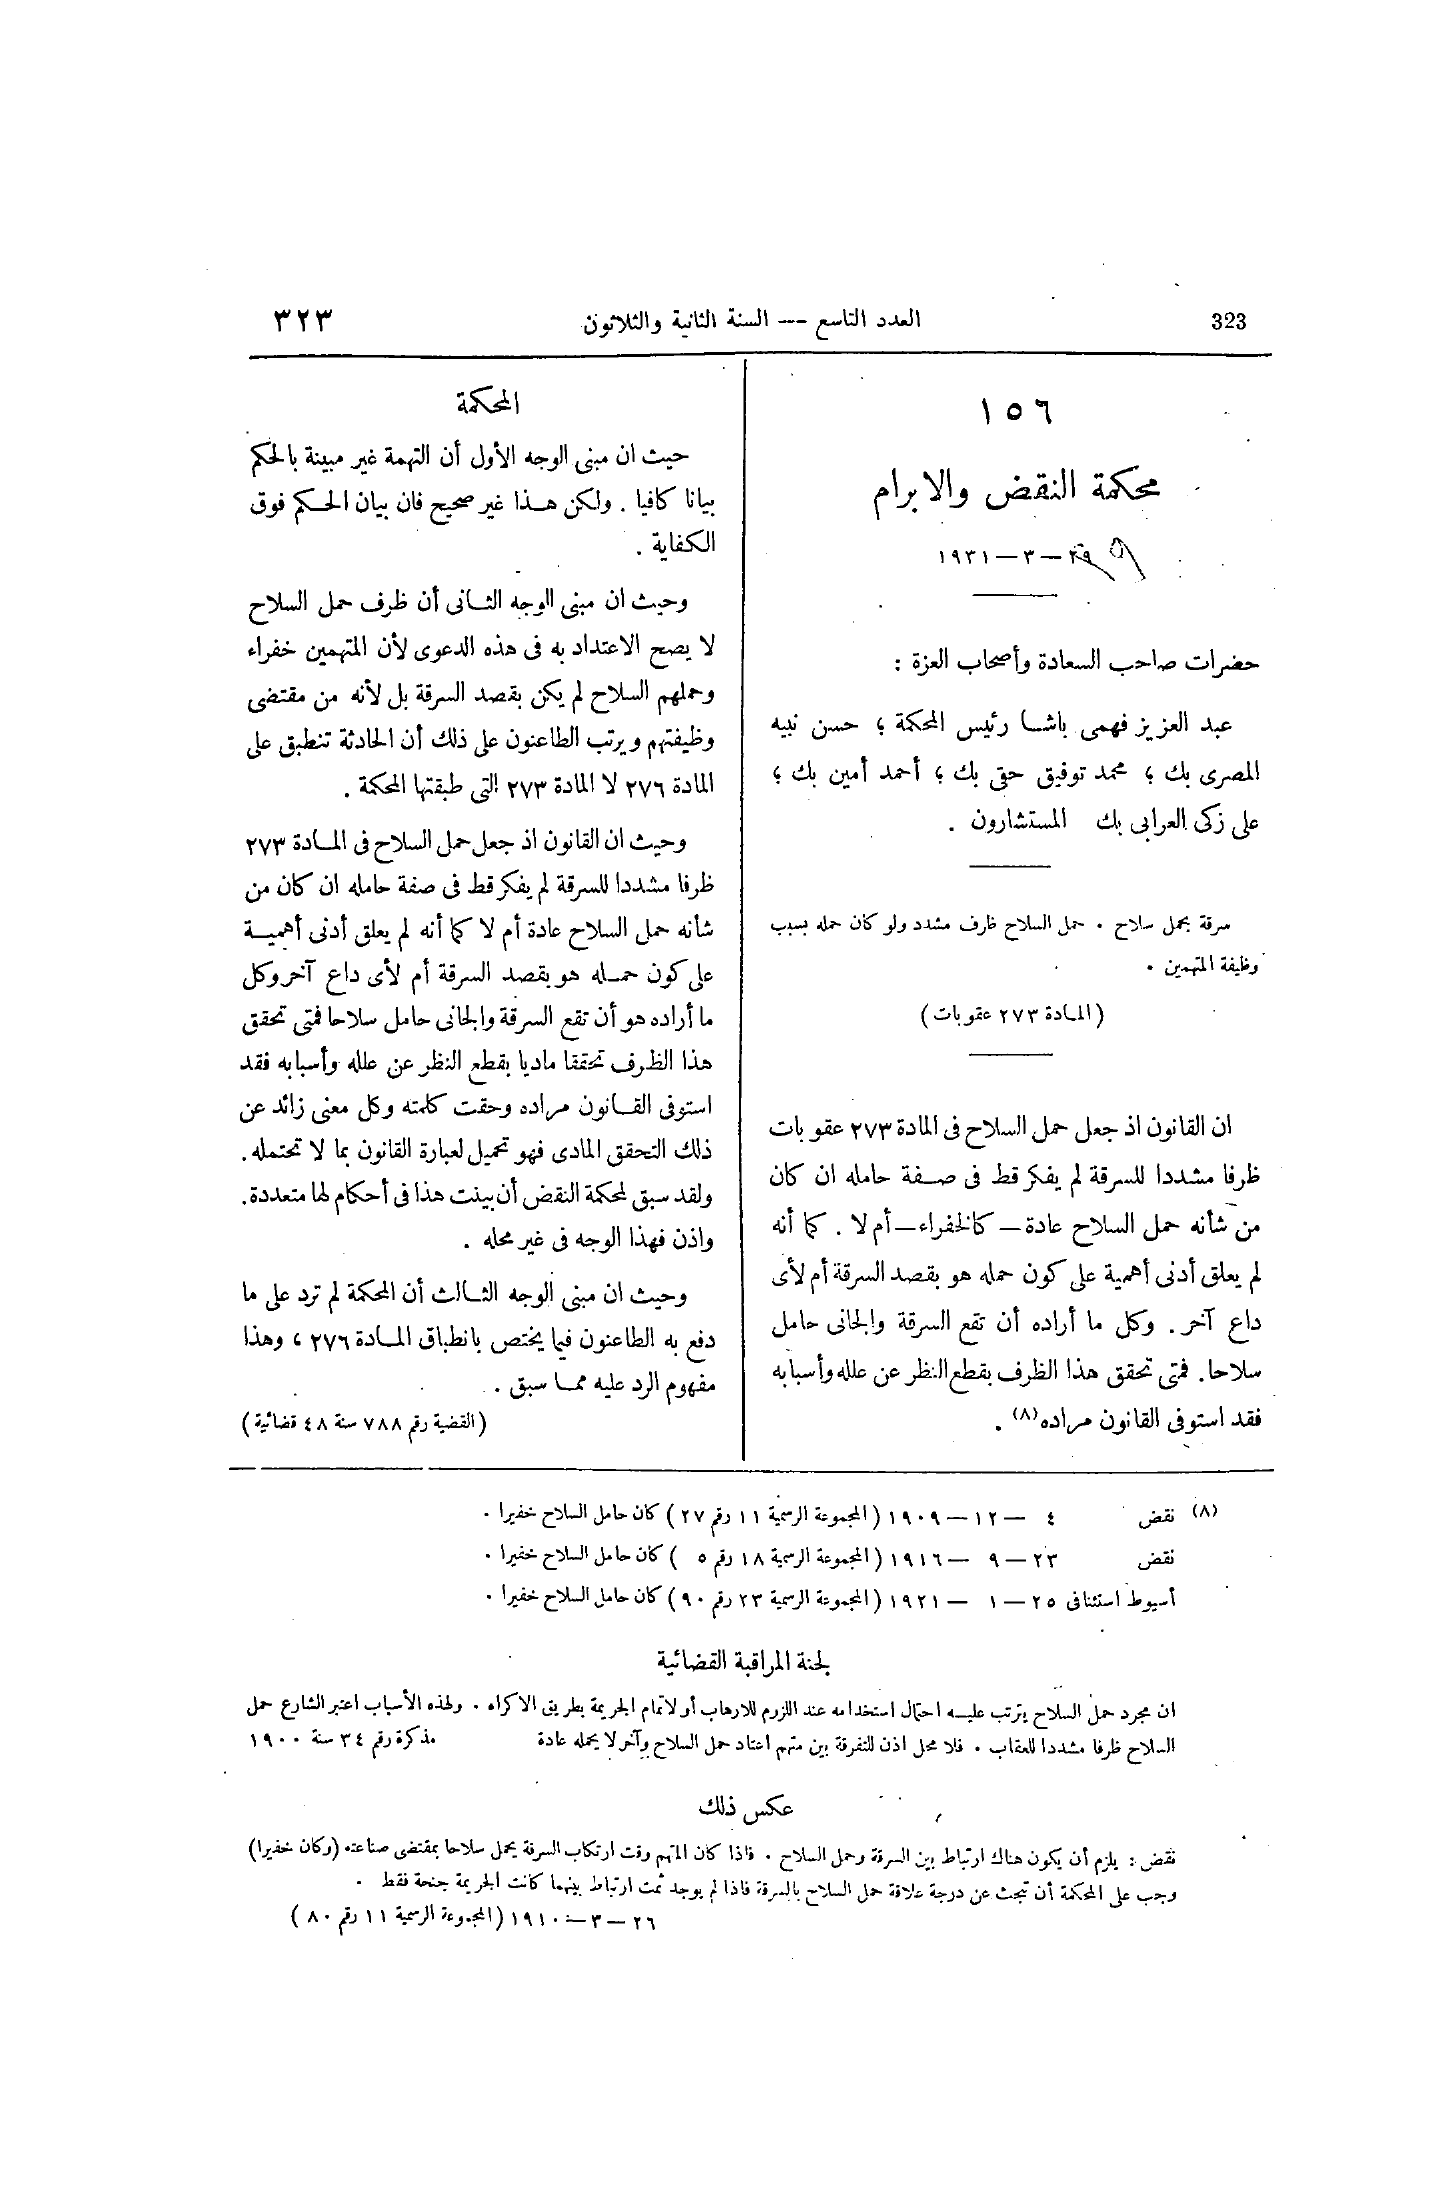 323
العدد التاسع — السنة الثانية والثلاثون
٣٢٣
١٥٦
محكمة النقض والابرام
٢٩ — ٣ — ١٩٣١
حضرات صاحب السعادة وأصحاب العزة :
عبد العزيز فهمى باشا رئيس المحكمة ؛ حسن نبيه
المصرى بك ؛ محمد توفيق حقى بك ؛ أحمد أمين بك ؛
على زكى العرابى بك المستشارون .
سرقة بحمل سلاح . حمل السلاح ظرف مشدد ولو كان حمله بسبب
وظيفة المتهمين .
( المادة ٢٧٣ عقوبات )
ان القانون اذ جعل حمل السلاح فى المادة ٢٧٣ عقوبات
ظرفا مشددا للسرقة لم يفكر قط فى صفة حامله ان كان
من شأنه حمل السلاح عادة — كالخفراء — أم لا . كما أنه
لم يعلق أدنى أهمية على كون حمله هو بقصد السرقة أم لأى
داع آخر . وكل ما أراده أن تقع السرقة والجانى حامل
سلاحا . فمتى تحقق هذا الظرف بقطع النظر عن علله وأسبابه
فقد استوفى القانون مراده (٨) .
المحكمة
حيث ان مبنى الوجه الأول أن التهمة غير مبينة بالحكم
بيانا كافيا . ولكن هذا غير صحيح فان بيان الحكم فوق
الكفاية .
وحيث ان مبنى الوجه الثانى أن ظرف حمل السلاح
لا يصح الاعتداد به فى هذه الدعوى لأن المتهمين خفراء
وحملهم السلاح لم يكن بقصد السرقة بل لأنه من مقتضى
وظيفتهم ويرتب الطاعنون على ذلك أن الحادثة تنطبق على
المادة ٢٧٦ لا المادة ٢٧٣ التى طبقتها المحكمة .
وحيث ان القانون اذ جعل حمل السلاح فى المادة ٢٧٣
ظرفا مشددا للسرقة لم يفكر قط فى صفة حامله ان كان من
شأنه حمل السلاح عادة أم لا كما أنه لم يعلق أدنى أهمية
على كون حمله هو بقصد السرقة أم لأى داع آخر وكل
ما أراده هو أن تقع السرقة والجانى حامل سلاحا فمتى تحقق
هذا الظرف تحققا ماديا بقطع النظر عن علله وأسبابه فقد
استوفى القانون مراده وحقت كلمته وكل معنى زائد عن
ذلك التحقق المادى فهو تحميل لعبارة القانون بما لا تحتمله .
ولقد سبق لمحكمة النقض أن بينت هذا فى أحكام لها متعددة .
واذن فهذا الوجه فى غير محله .
وحيث ان مبنى الوجه الثالث أن المحكمة لم ترد على ما
دفع به الطاعنون فيما يختص بانطباق المادة ٢٧٦ ، وهذا
مفهوم الرد عليه مما سبق .
( القضية رقم ٧٨٨ سنة ٤٨ قضائية )
(٨) نقض ٤ — ١٢ — ١٩٠٩ ( المجموعة الرسمية ١١ رقم ٢٧ ) كان حامل السلاح خفيرا .
نقض ٢٣ — ٩ — ١٩١٦ ( المجموعة الرسمية ١٨ رقم ٥ ) كان حامل السلاح خفيرا .
أسيوط استئنافى ٢٥ — ١ — ١٩٢١ ( المجموعة الرسمية ٢٣ رقم ٩٠ ) كان حامل السلاح خفيرا .
لجنة المراقبة القضائية
ان مجرد حمل السلاح يترتب عليه احتمال استخدامه عند اللزوم للارهاب أو لاتمام الجريمة بطريق الاكراه . ولهذه الأسباب اعتبر الشارع حمل
السلاح ظرفا مشددا للعقاب . فلا محل اذن للتفرقة بين متهم اعتاد حمل السلاح وآخر لا يحمله عادة مذكرة رقم ٣٤ سنة ١٩٠٠
عكس ذلك
نقض : يلزم أن يكون هناك ارتباط بين السرقة وحمل السلاح . فاذا كان المتهم وقت ارتكاب السرقة يحمل سلاحا بمقتضى صناعته (وكان خفيرا)
وجب على المحكمة أن تبحث عن درجة علاقة حمل السلاح بالسرقة فاذا لم يوجد ثمت ارتباط بينهما كانت الجريمة جنحة فقط .
٢٦ — ٣ — ١٩١٠ ( المجموعة الرسمية ١١ رقم ٨٠ )